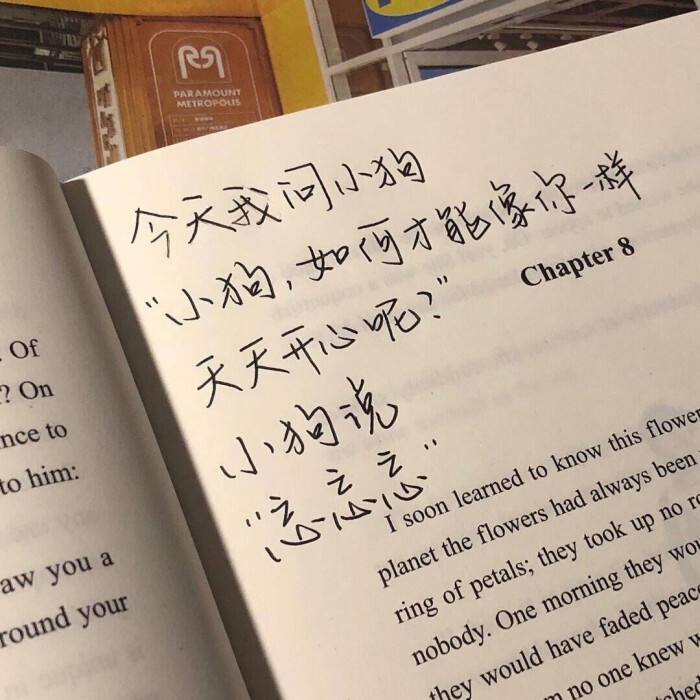 PARAMOUNT
METROPOLIS
今天我问小狗
“小狗，如何才能像你一样
天天开心呢？”
小狗说
“忘忘忘”
. Of
? On
nce to
to him:
aw you a
round your
Chapter 8
I soon learned to know this flower
planet the flowers had always been
ring of petals; they took up no
nobody. One morning they wou
they would have faded peace
no one knew